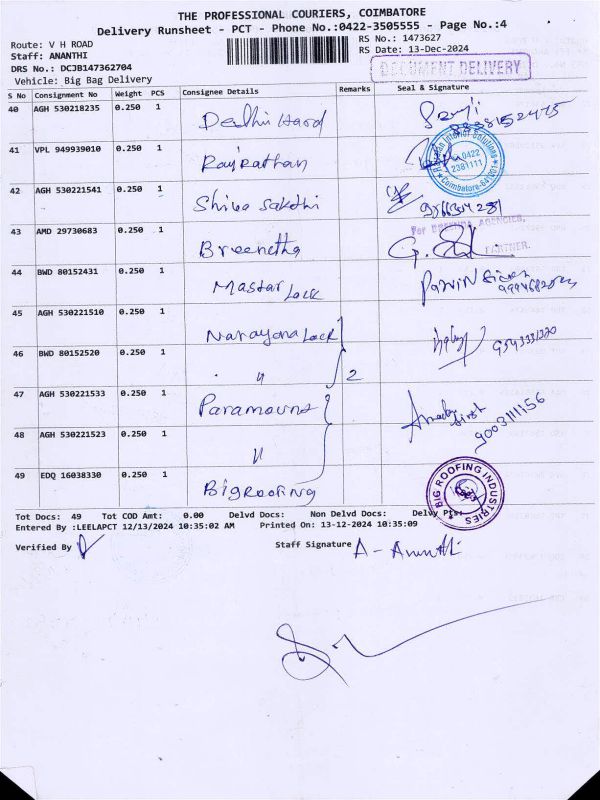 THE PROFESSIONAL COURIERS, COIMBATORE
Delivery Runsheet - PCT - Phone No.:0422-3505555 - Page No.:4
Route: V H ROAD
RS No.: 1473627
Staff: ANANTHI
RS Date: 13-Dec-2024
DRS No.: DCJB147362704
DOCUMENT DELIVERY
Vehicle: Big Bag Delivery
S No Consignment No Weight PCS Consignee Details Remarks Seal & Signature
40 AGH 530218235 0.250 1 Delhi Hard
41 VPL 949939010 0.250 1 Rajrathan
Interior Solutions
0422
2381111
Coimbatore-641 001
42 AGH 530221541 0.250 1 Shiva Sakthi
43 AMD 29730683 0.250 1 Breenetha
For AGENCIES,
PARTNER.
44 BWD 80152431 0.250 1 Mastar Lock
45 AGH 530221510 0.250 1 Narayana Lock
46 BWD 80152520 0.250 1 " 2
47 AGH 530221533 0.250 1 Paramount
9003111156
48 AGH 530221523 0.250 1 "
49 EDQ 16038330 0.250 1 Big Roofing
BIG ROOFING INDUSTRIES
Tot Docs: 49 Tot COD Amt: 0.00 Delvd Docs: Non Delvd Docs: Delvy Pts:
Entered By :LEELAPCT 12/13/2024 10:35:02 AM Printed On: 13-12-2024 10:35:09
Verified By
Staff Signature A- Ananthi